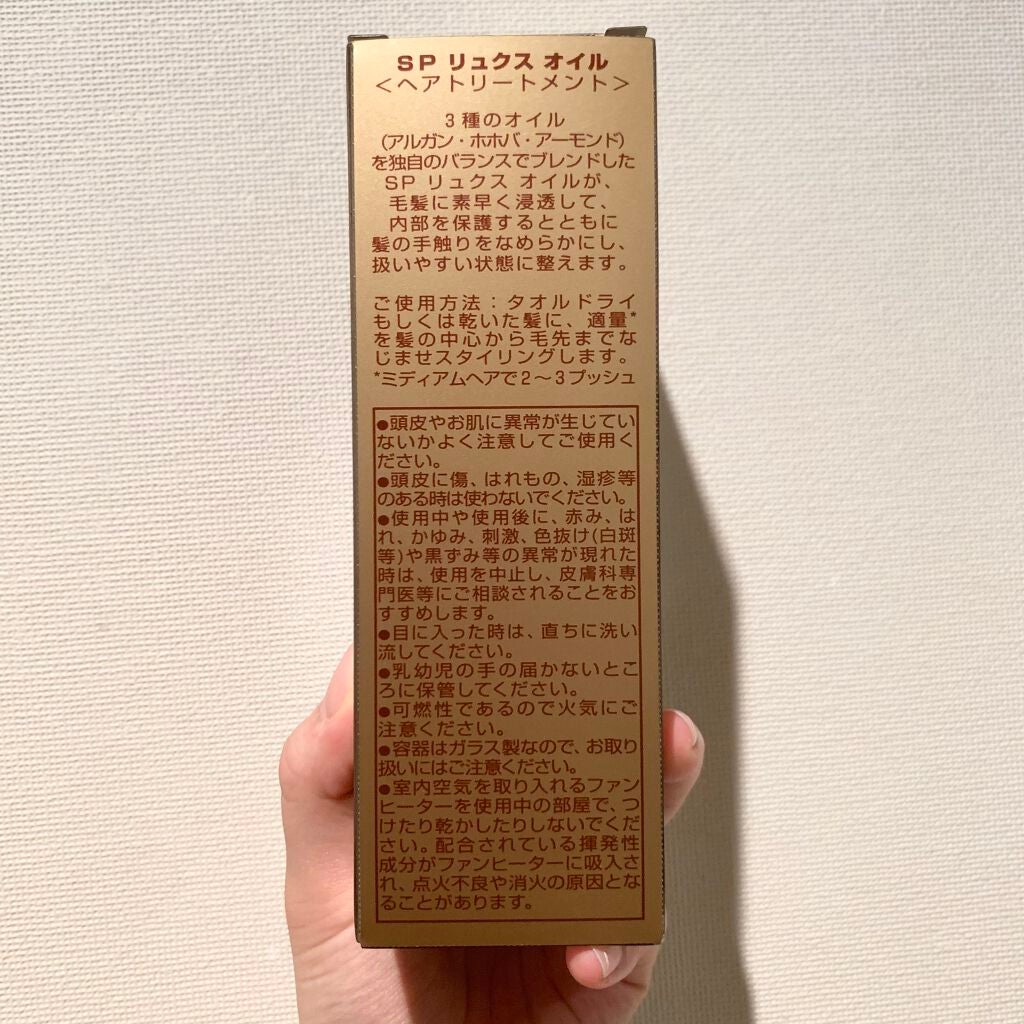 SP リュクス オイル
＜ヘアトリートメント＞
3種のオイル
(アルガン・ホホバ・アーモンド)
を独自のバランスでブレンドした
SP リュクス オイルが、
毛髪に素早く浸透して、
内部を保護するとともに
髪の手触りをなめらかにし、
扱いやすい状態に整えます。
ご使用方法：タオルドライ
もしくは乾いた髪に、適量*
を髪の中心から毛先までな
じませスタイリングします。
*ミディアムヘアで2～3プッシュ
●頭皮やお肌に異常が生じてい
ないかよく注意してご使用く
ださい。
●頭皮に傷、はれもの、湿疹等
のある時は使わないでください。
●使用中や使用後に、赤み、は
れ、かゆみ、刺激、色抜け(白斑
等)や黒ずみ等の異常が現れた
時は、使用を中止し、皮膚科専
門医等にご相談されることをお
すすめします。
●目に入った時は、直ちに洗い
流してください。
●乳幼児の手の届かないとこ
ろに保管してください。
●可燃性であるので火気にご
注意ください。
●容器はガラス製なので、お取り
扱いにはご注意ください。
●室内空気を取り入れるファン
ヒーターを使用中の部屋で、つ
けたり乾かしたりしないでくだ
さい。配合されている揮発性
成分がファンヒーターに吸入さ
れ、点火不良や消火の原因とな
ることがあります。